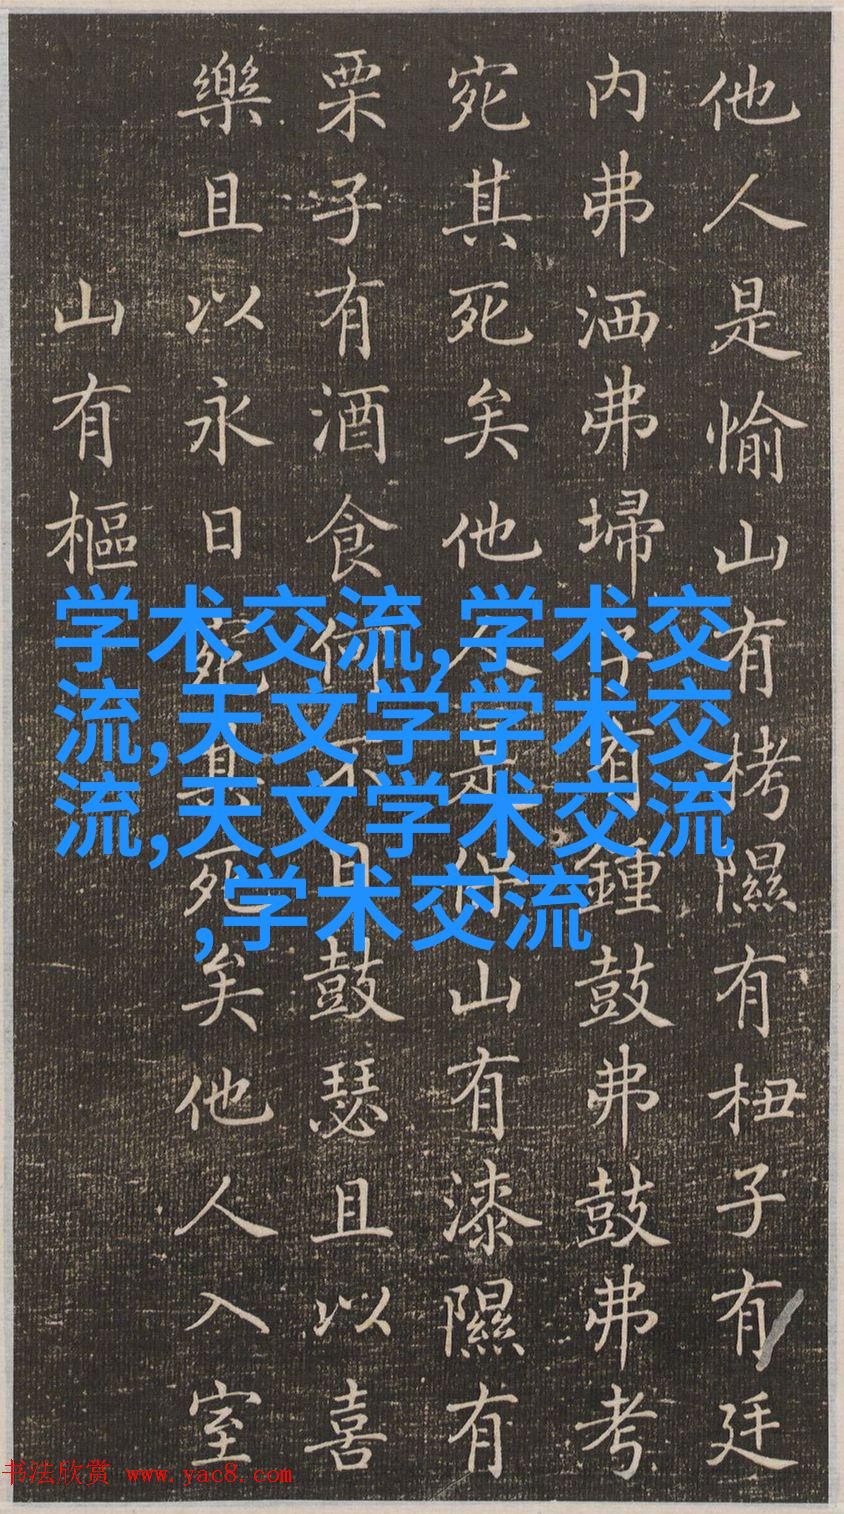 他人是愉山有栲隰有杻子有廷
内弗洒弗埽子有鍾鼓弗鼓弗考
宛其死矣他人是保山有漆隰有
栗子有酒食何不日鼓瑟且以喜
樂且以永日宛其死矣他人入室
山有樞
学术交流,学术交
流,天文学学术交
流,天文学术交流
,学术交流
书法欣赏 www.yac8.com